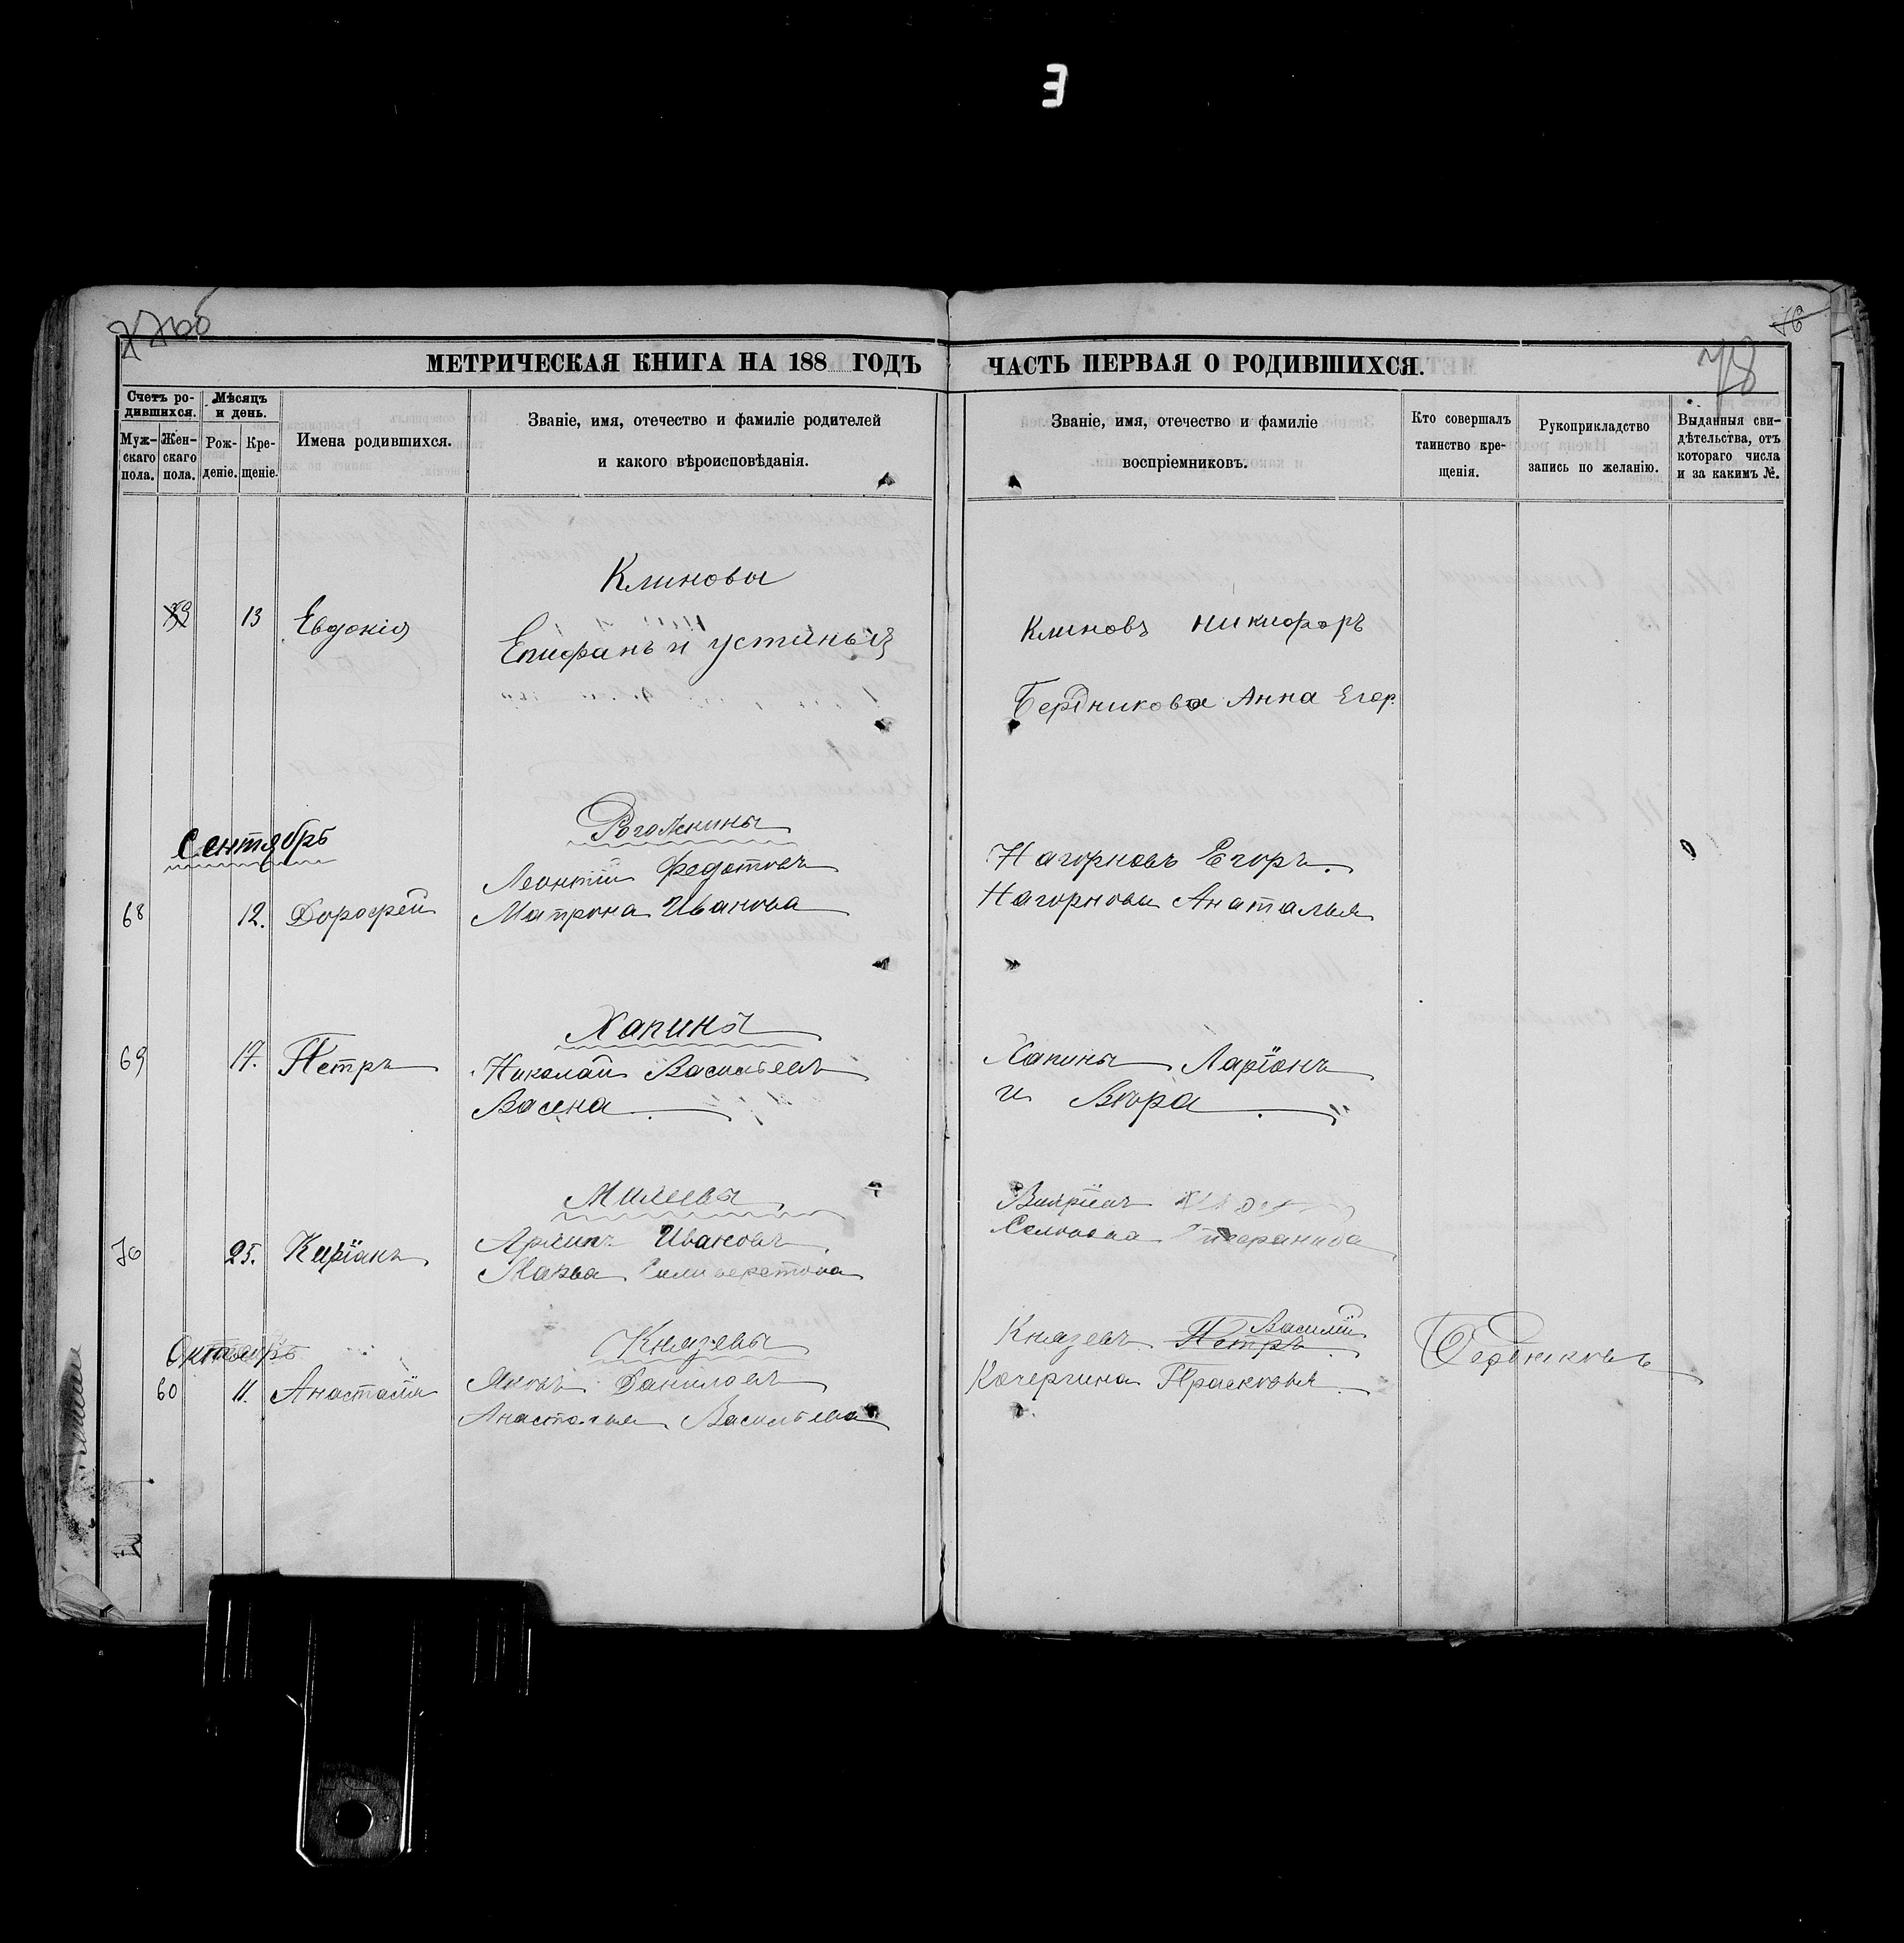 76
78
МЕТРИЧЕСКАЯ КНИГА НА 188 ГОДЪ
ЧАСТЬ ПЕРВАЯ О РОДИВШИХСЯ.
Счетъ ро-
дившихся.
Муж-
скаго
пола.
Жен-
скаго
пола.
Мѣсяцъ
и день.
Рож-
деніе.
Кре-
щеніе.
Имена родившихся.
Званіе, имя, отечество и фамиліе родителей
и какого вѣроисповѣданія.
Званіе, имя, отечество и фамиліе
воспріемниковъ.
Кто совершалъ
таинство кре-
щенія.
Рукоприкладство
запись по желанію.
Выданныя сви-
дѣтельства, отъ
котораго числа
и за какимъ №.
Клиновы
13 Евдокія
Епифанъ и устинья
Клиновъ никифоръ
Бердникова Анна Егор.
Сентябрь
Рогожкины
Леонтій Федотовъ
68 12. Дорофей Матрона Иванова
Нагорновъ Егоръ.
Нагорнова Анаталья
Хапины
69 17. Петръ Николай Васильевъ
Васена
Хапины Ларіонъ
и Вѣра
Милеевы
Архипъ Ивановъ
70 25. Киріакъ
Марья Силиверстова
Князевы
Октябрь
60 11. Анастасія Яковъ Даниловъ
Анастасия Васильева
Князевъ Петръ Василій
Кочергина Прасковья
Бердниковъ